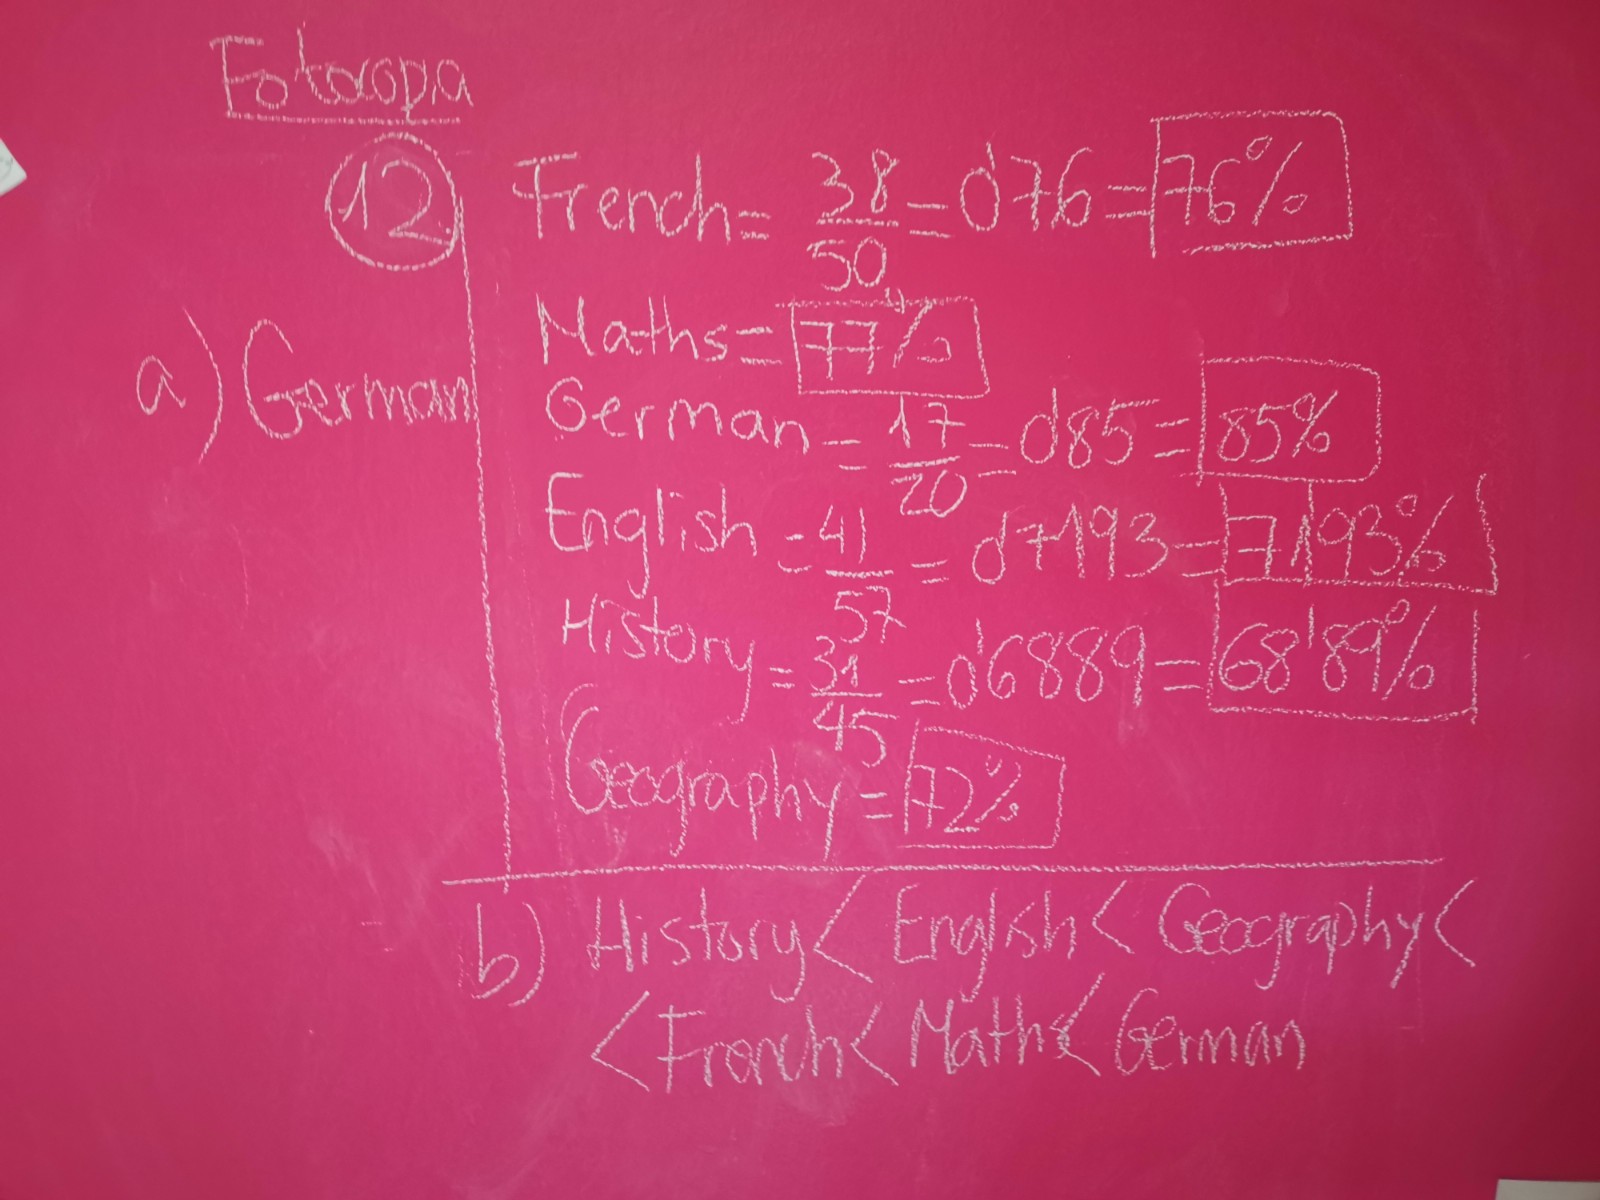 Fotocopia
12. French = 38/50 = 0'76 = 76%
Maths = 77%
a) German
German = 17/20 = 0'85 = 85%
English = 41/57 = 0'7193 = 71'93%
History = 31/45 = 0'6889 = 68'89%
Geography = 72%
b) History < English < Geography <
< French < Maths < German